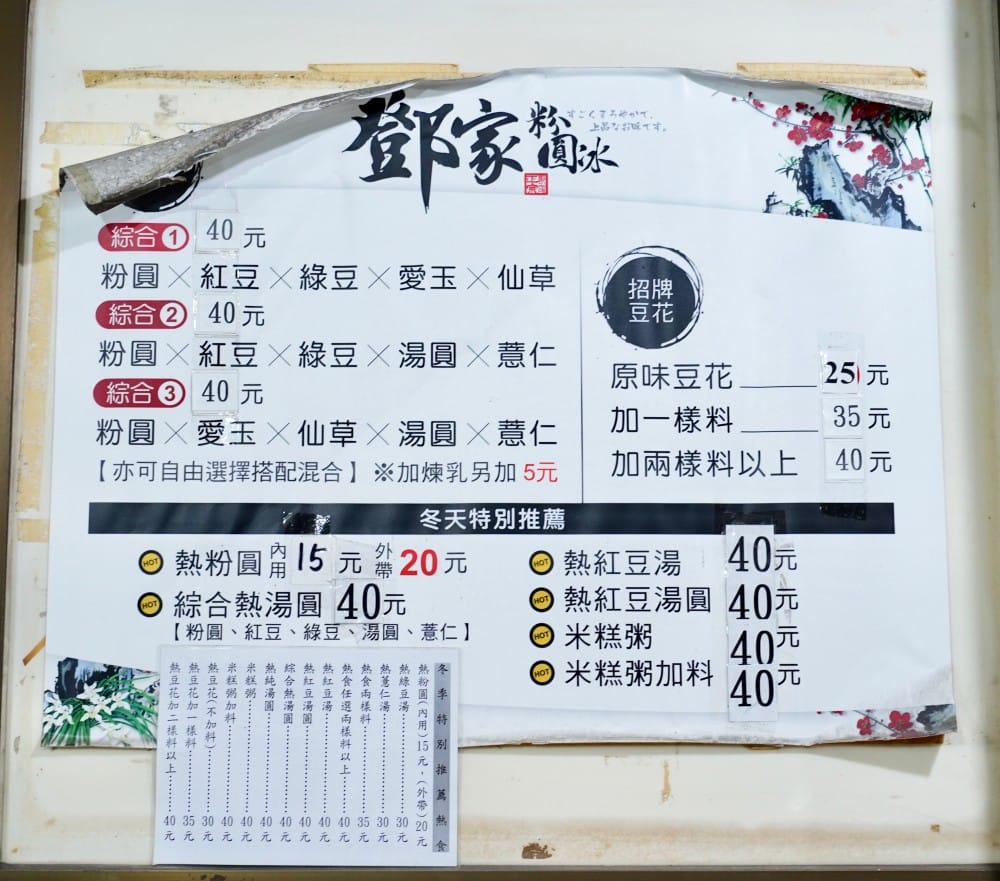 鄧家粉圓冰
すごくまろやかで、
上品なお味です。
綜合1 40元
粉圓×紅豆×綠豆×愛玉×仙草
綜合2 40元
粉圓×紅豆×綠豆×湯圓×薏仁
綜合3 40元
粉圓×愛玉×仙草×湯圓×薏仁
【亦可自由選擇搭配混合】※加煉乳另加5元
招牌
豆花
原味豆花 25元
加一樣料 35元
加兩樣料以上 40元
冬天特別推薦
HOT 熱粉圓 內用 15元 外帶 20元
HOT 綜合熱湯圓 40元
【粉圓、紅豆、綠豆、湯圓、薏仁】
HOT 熱紅豆湯 40元
HOT 熱紅豆湯圓 40元
HOT 米糕粥 40元
HOT 米糕粥加料 40元
冬季特別推薦熱食
熱粉圓(內用)15元，(外帶)20元
熱綠豆湯……30元
熱薏仁湯……30元
熱食兩樣料……35元
熱食任選兩樣料以上……40元
熱紅豆湯……40元
熱紅豆湯圓……40元
綜合熱湯圓……40元
熱純湯圓……40元
米糕粥……40元
米糕粥加料……40元
熱豆花(不加料)……30元
熱豆花加一樣料……35元
熱豆花加二樣料以上……40元